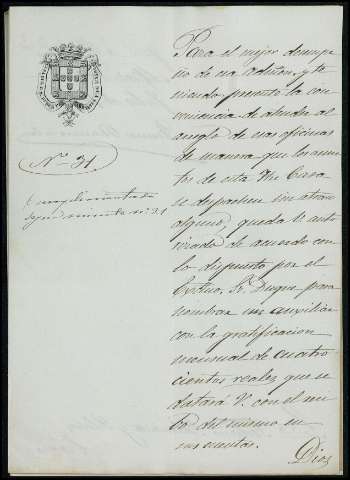 Nº 31
Cumplimentada
Para el mejor desempe
ño de su admon, y te
niendo presente la con
veniencia de atender al
arreglo de esas oficinas
de manera que los asun
tos de esta Ilte Casa
se despachen sin atraso
alguno, queda V. auto
rizado de acuerdo con
lo dispuesto por el
Excmo. Sr. Duque para
nombrar un auxiliar
con la gratificacion
mensual de cuatro
cientos reales que se
datará V. con el reci
bo del mismo en
sus cuentas.
Dios